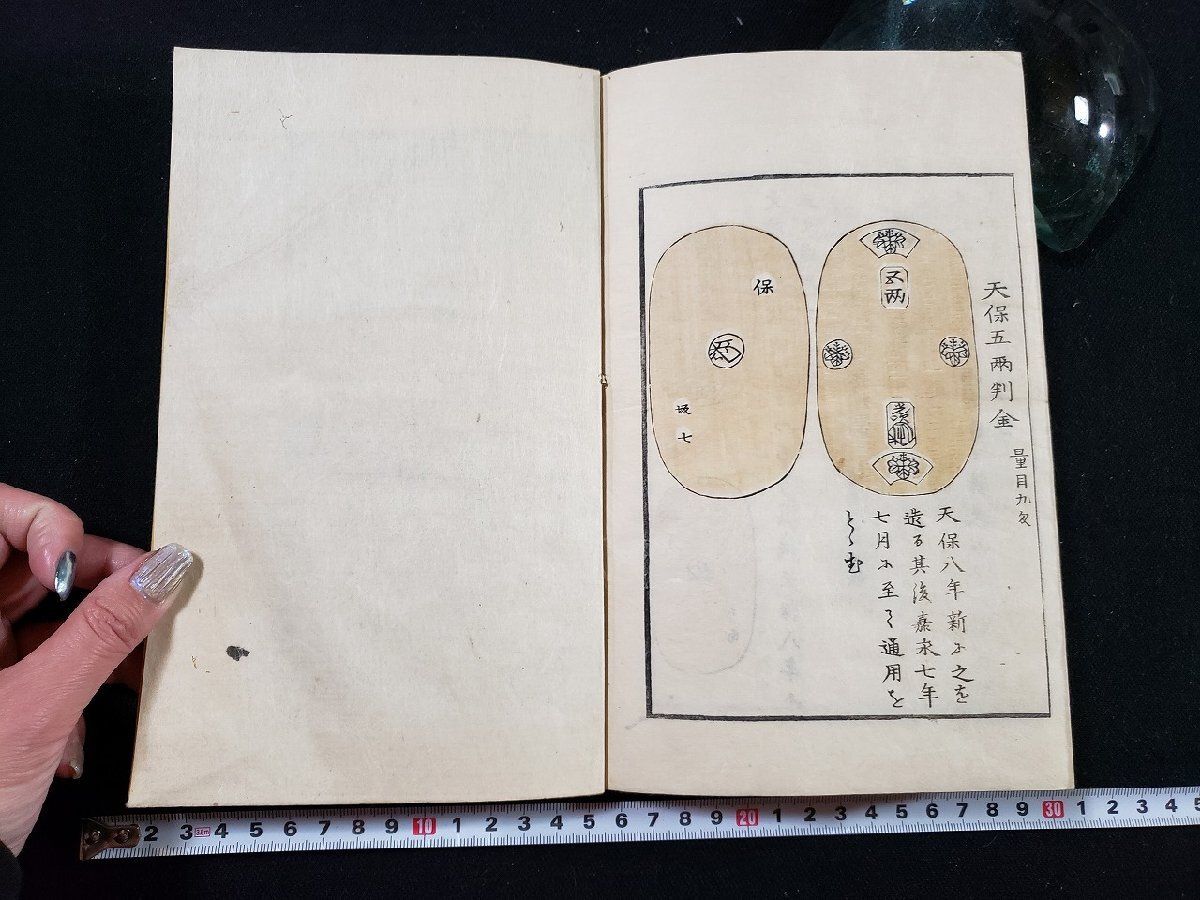 天保五兩判金
量目九匁
五両
保
坂
七
天保八年新に之を
造る其後嘉永七年
七月に至て通用を
とゝむ
2 3 4 5 6 7 8 9 10 1 2 3 4 5 6 7 8 9 20 1 2 3 4 5 6 7 8 9 30 1 2 3 4 5